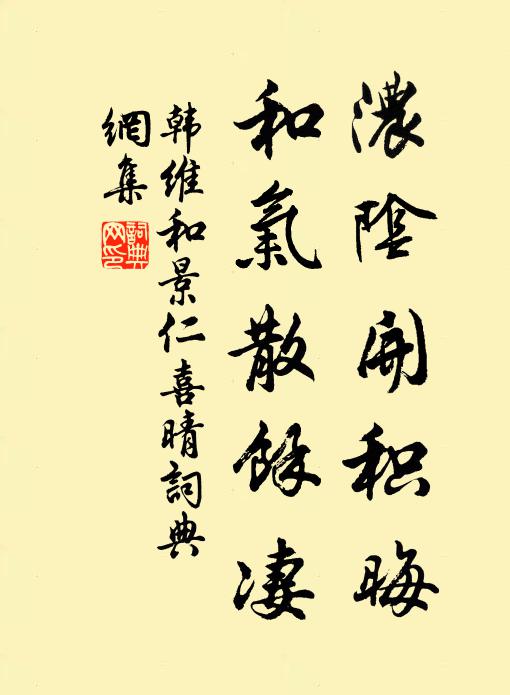 濃陰開积晦
和氣散餘凄
韩維和景仁喜晴詞典
網集
詞典
网印